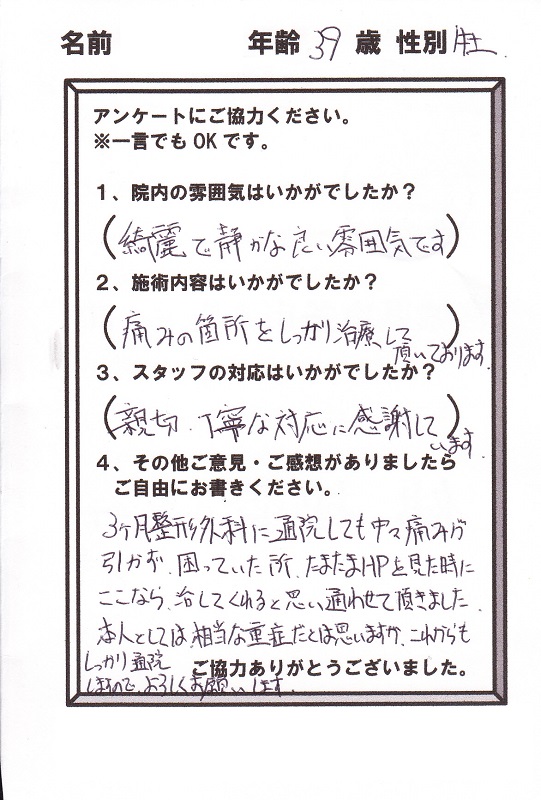 名前 年齢 39 歳 性別
アンケートにご協力ください。
※一言でもOKです。
1、院内の雰囲気はいかがでしたか？
(綺麗で静かな良い雰囲気です)
2、施術内容はいかがでしたか？
(痛みの箇所をしっかり治療して)
頂いております。
3、スタッフの対応はいかがでしたか？
(親切、丁寧な対応に感謝して)
います。
4、その他ご意見・ご感想がありましたら
ご自由にお書きください。
3ヶ月整形外科に通院しても中々痛みが
引かず、困っていた所、たまたまHPを見た時に
ここなら、治してくれると思い通わせて頂きました。
本人としては、相当な重症だとは思いますが、これからも
しっかり通院
ご協力ありがとうございました。
しますので、よろしくお願いします。